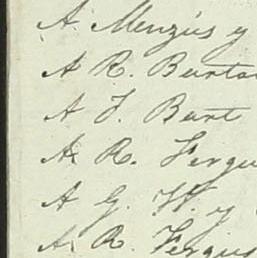 A. Menzús y
A R. Burton
A J. Burt
A R. Fergu
A G. W. y
A. R. Fergus